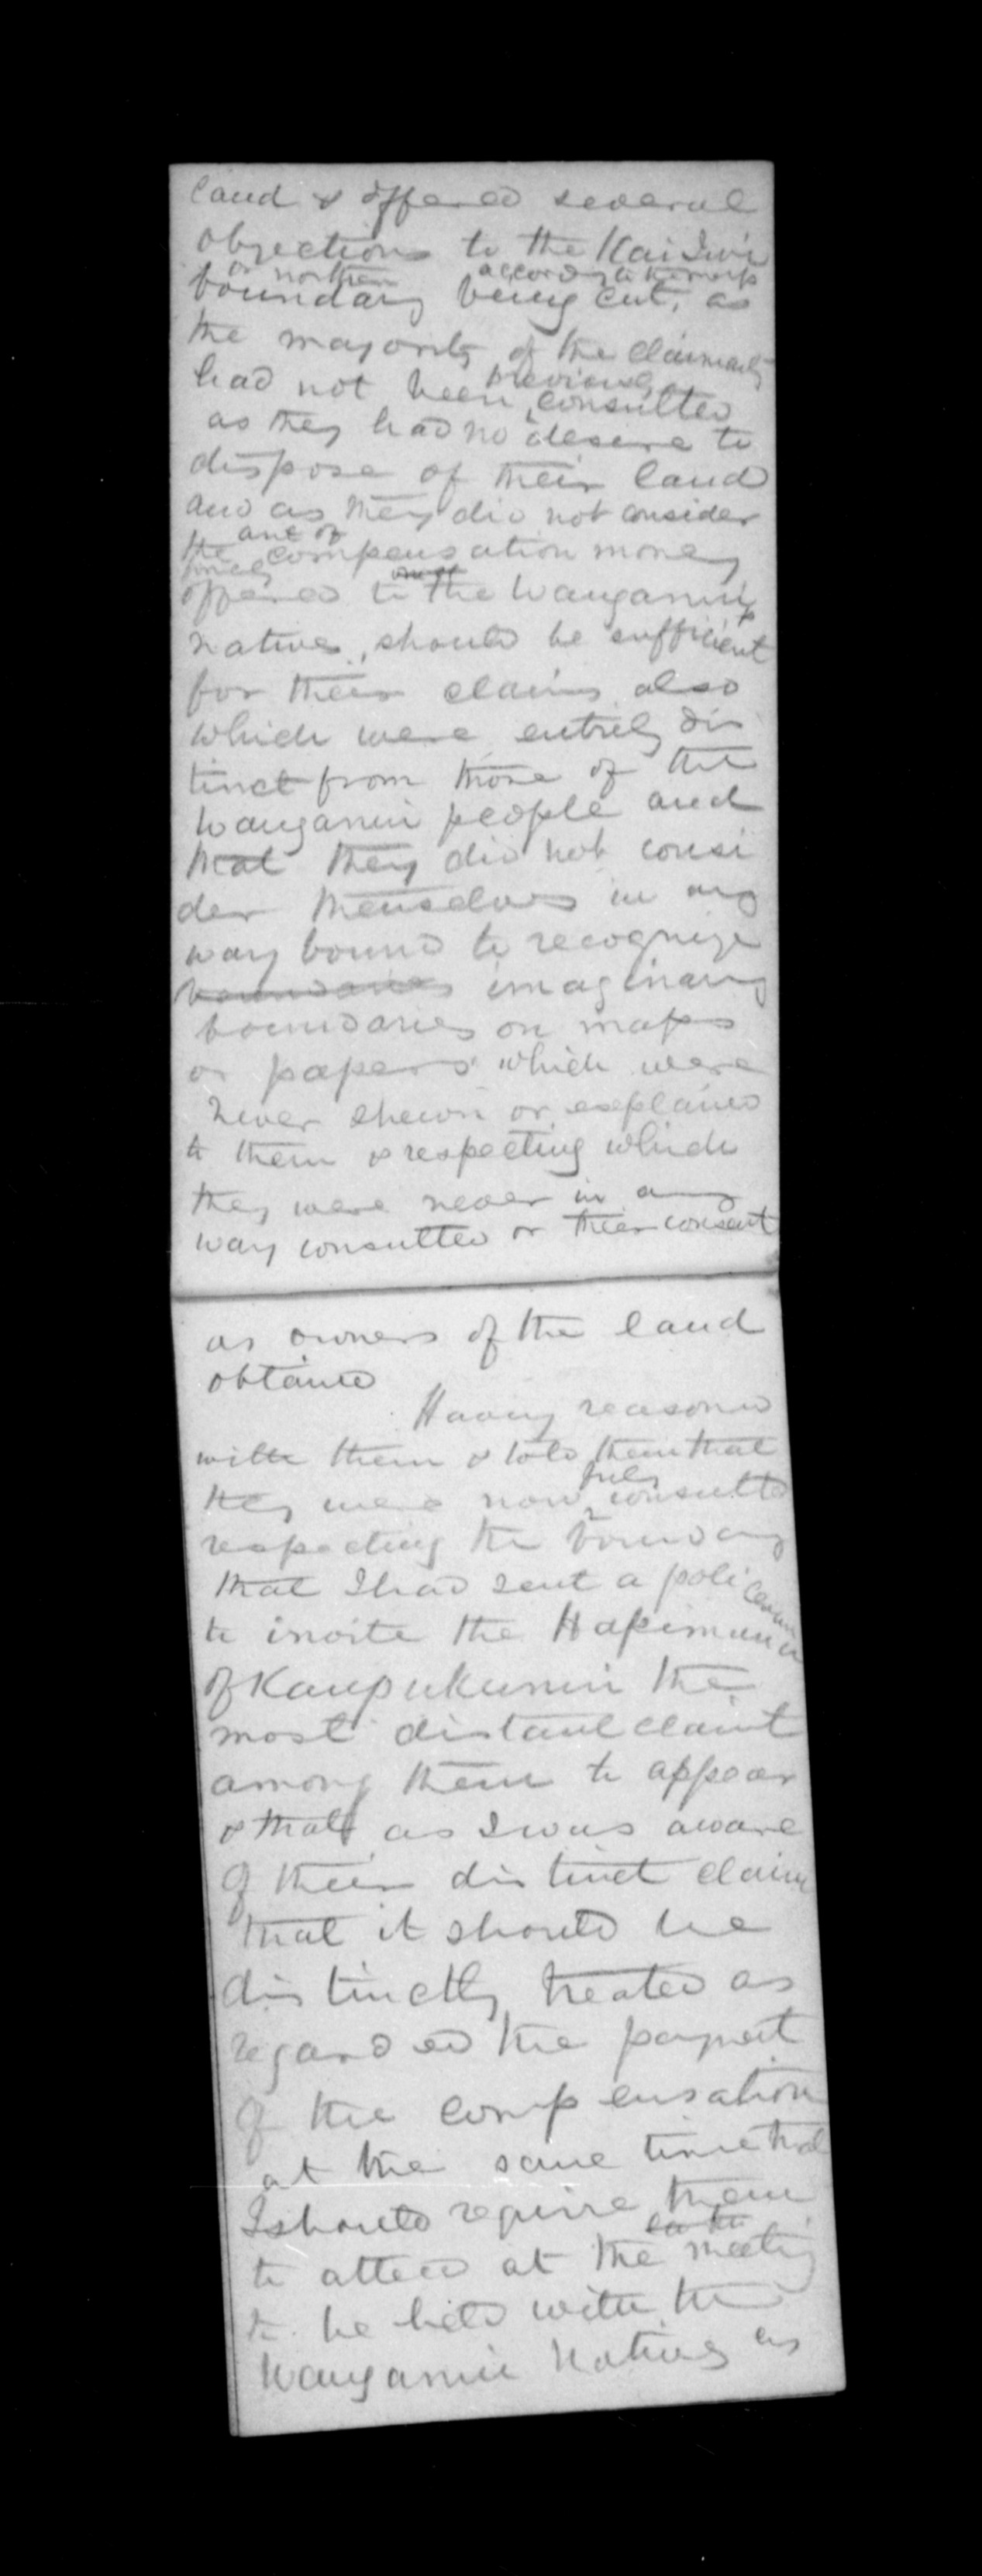 land & offered several
objections to the Kai Iwi
or northern according to the map
boundary being cut, as
the majority of the claimants
previously
had not been consulted
as they had no desire to
dispose of their land
and as they did not consider
the amt of compensation money
offered to the Wanganui
natives, should be sufficient
for their claims also
which were entirely dis
tinct from those of the
Wanganui people and
that they did not consi
der themselves in any
way bound to recognize
boundaries imaginary
boundaries on maps
or papers which were
never shewn or explained
to them & respecting which
they were never in any
way consulted or their consent
as owners of the land
obtained
Having reasoned
with them & told them that
fully
they were now consulted
respecting the boundary
that I had sent a policeman
to invite the Hapimana
of Kaupukunui the
most distant claimt
among them to appear
& that as I was aware
of their distinct claim
that it should be
distinctly treated as
regarded the payment
of the compensation
at the same time that
I should require them
to attend at the meeting
to be held with the
Wanganui Natives as